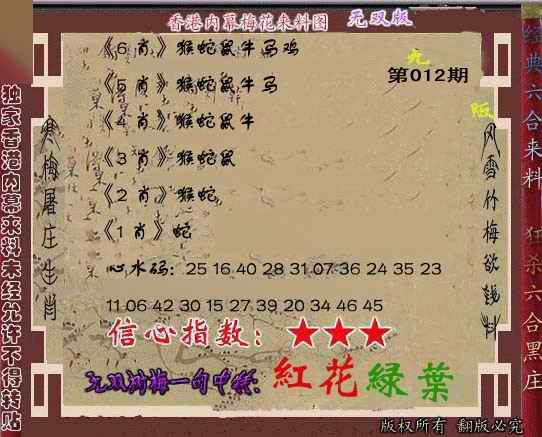 香港内幕梅花来料图 无双版
《6 肖》猴蛇鼠牛马鸡
第012期
《5 肖》猴蛇鼠牛马
《4 肖》猴蛇鼠牛
《3 肖》猴蛇鼠
《2 肖》猴蛇
《1 肖》蛇
心水码: 25 16 40 28 31 07 36 24 35 23
11 06 42 30 15 27 39 20 34 46 45
信心指数: ★★★
一句中特: 紅花緑葉
版权所有 翻版必究
独家香港内幕来料未经允许不得转贴
寒梅屠庄生肖
风雪竹梅欲钱料
经典六合来料 狂杀六合黑庄